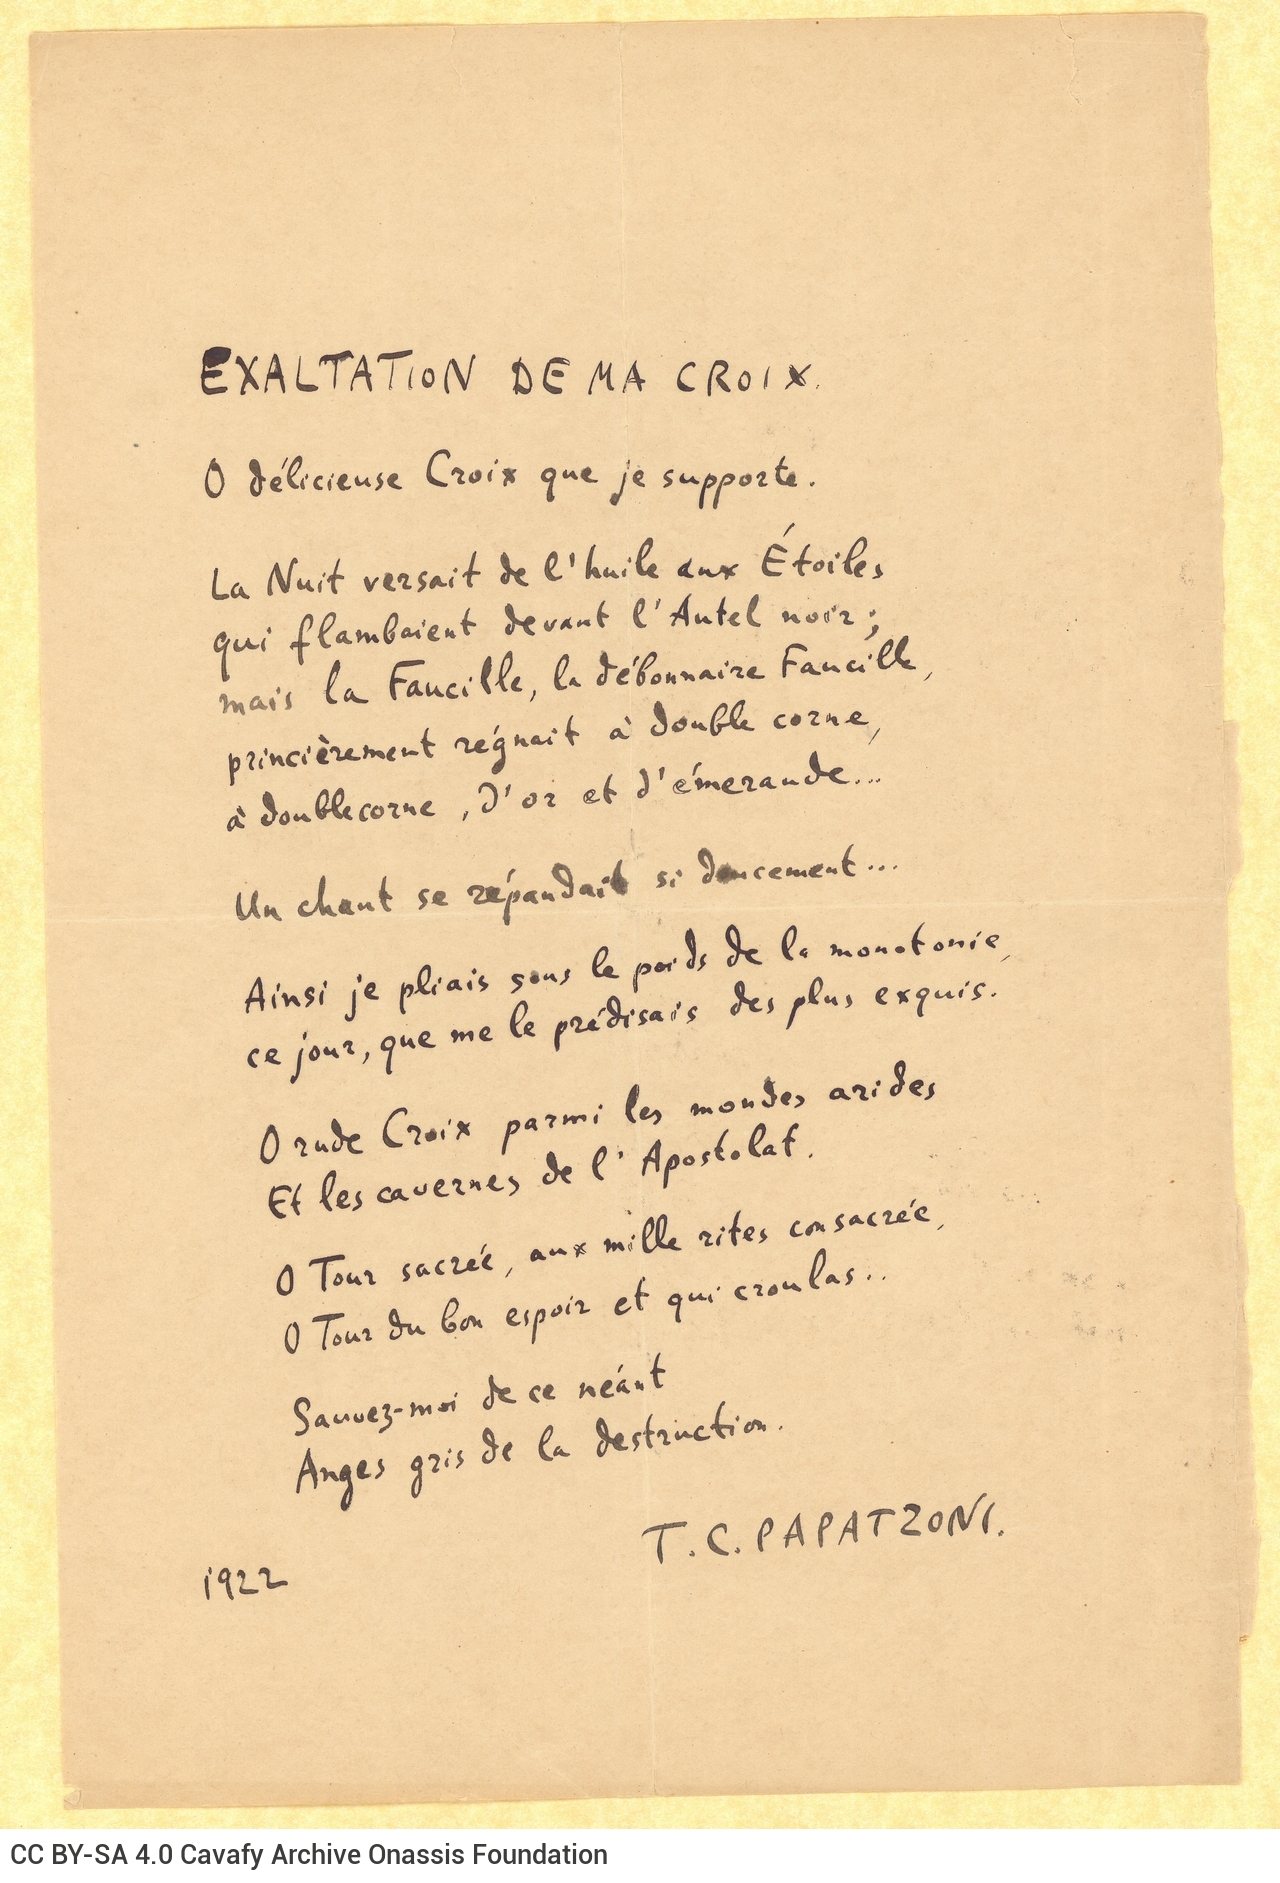 EXALTATION DE MA CROIX.
O délicieuse Croix que je supporte.
La Nuit versait de l'huile aux Étoiles
qui flambaient devant l'Autel noir;
mais la Faucille, la débonnaire Faucille,
princièrement régnait à double corne,
à double corne, d'or et d'émeraude...
Un chant se répandait si doucement...
Ainsi je pliais sous le poids de la monotonie,
ce jour, que me le prédisais des plus exquis.
O rude Croix parmi les mondes arides
Et les cavernes de l'Apostolat.
O Tour sacrée, aux mille rites consacrée,
O Tour du bon espoir et qui croulas..
Sauvez-moi de ce néant
Anges gris de la destruction.
T. C. PAPATZONI.
1922
CC BY-SA 4.0 Cavafy Archive Onassis Foundation